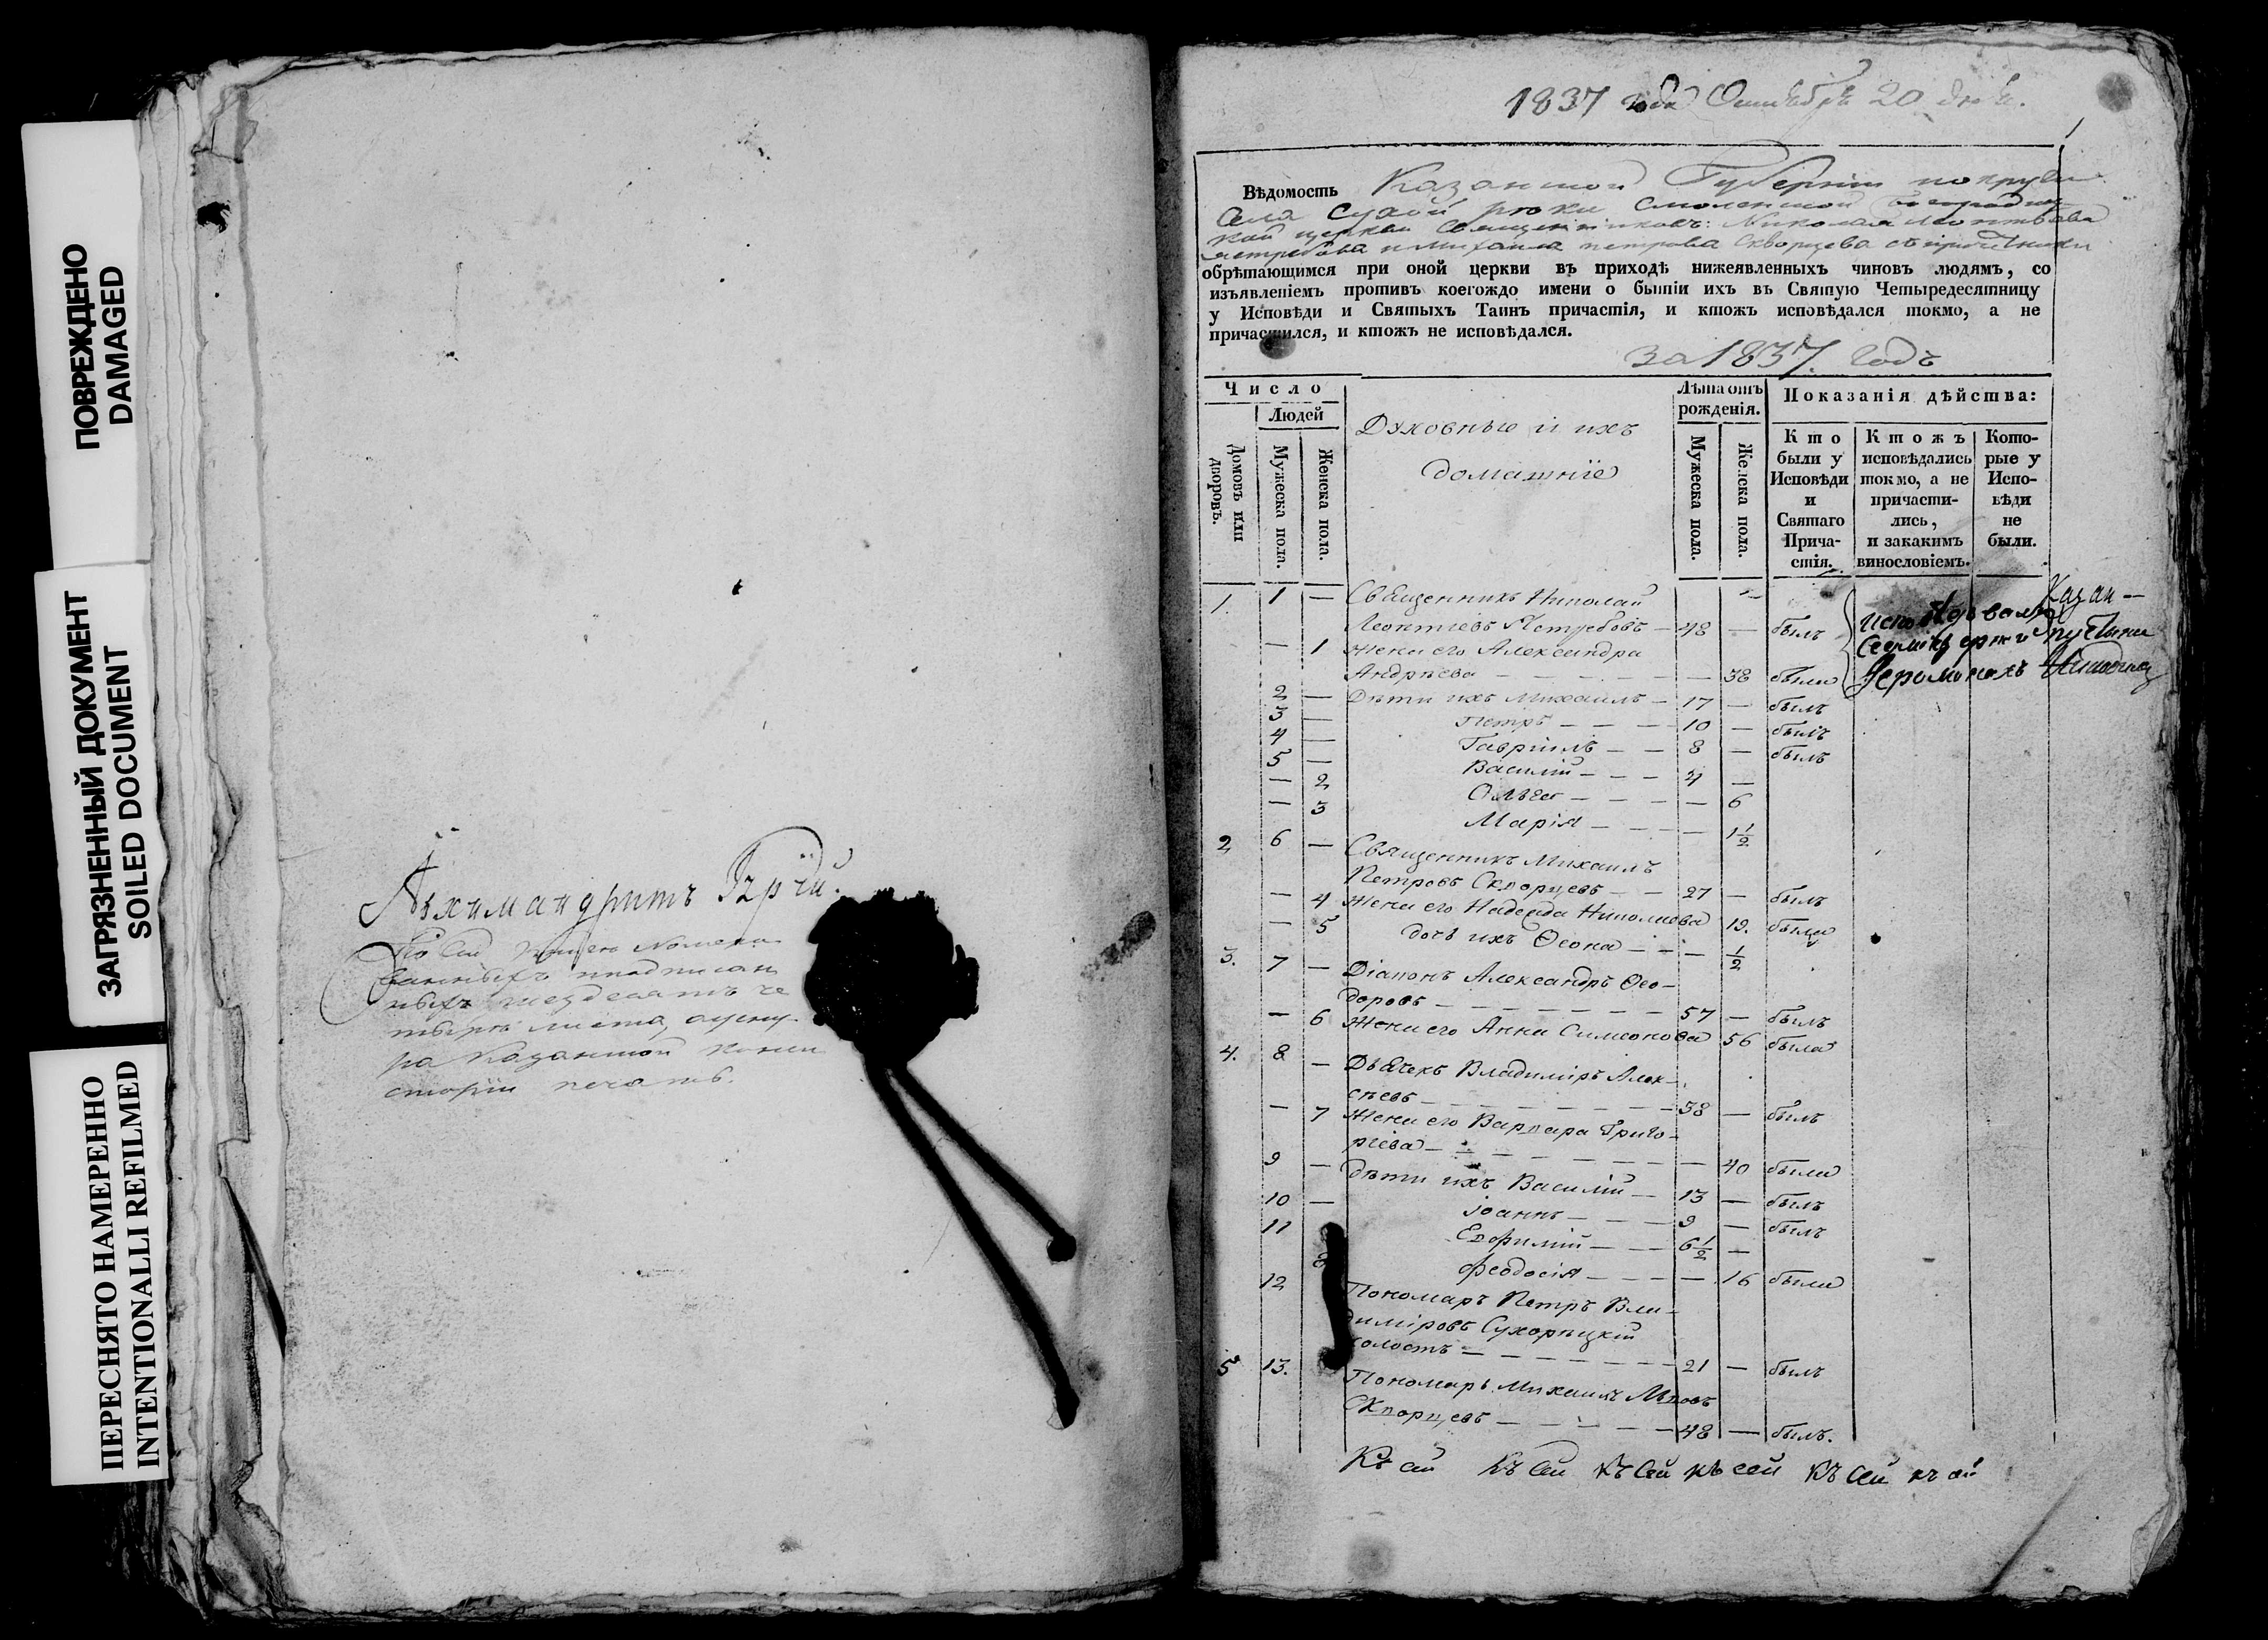 ПОВРЕЖДЕНО
DAMAGED
ЗАГРЯЗНЕННЫЙ ДОКУМЕНТ
SOILED DOCUMENT
ПЕРЕСНЯТО НАМЕРЕННО
INTENTIONALLI REFILMED
Архимандритъ Гурій.
По сей
шездесятъ че
тыре листа,
ра Казанской конси
сторіи печать.
1837 года Октября 20 дня.
1
Вѣдомость Казанской Губерніи
Села Сухой рѣки Смоленской Богородиц
кой церкви Священниковъ: Николая Леонтьева
Ястребова и Михаила Петрова Скворцева съ причетники
обрѣтающимся при оной церкви въ приходѣ нижеявленныхъ чиновъ людямъ, со
изъявленіемъ противъ коегождо имени о бытіи ихъ въ Святую Четыредесятницу
у Исповѣди и Святыхъ Таинъ причастія, и ктожъ исповѣдался токмо, а не
причастился, и ктожъ не исповѣдался.
за 1837. годъ
Число
Людей
Домовъ или дворовъ.
Мужеска пола.
Женска пола.
Духовные и ихъ
домашніе
Лѣта отъ рожденія.
Мужеска пола.
Женска пола.
Показанія дѣйства:
Кто были у Исповѣди и Святаго Причастія.
Ктожъ исповѣдались токмо, а не причастились, и закакимъ винословіемъ.
Которые у Исповѣди не были.
1. 1 — Священникъ Николай
Леонтіевъ Ястребовъ — 48 — былъ
— 1 Жена его Александра
Андрѣева — — 38 была
Казан—
Исповѣдовалъ
Седміезерной пустыни
Іеромонахъ
2 — Дѣти ихъ Михаилъ — 17 — былъ
3 — Петръ — 10 — былъ
4 — Гавріилъ — 8 — былъ
5 — Василій — 4 —
— 2 Ольга — — 6
— 3 Марія — — 1½
2 6 — Священникъ Михаилъ
Петровъ Скворцевъ — 27 — былъ
— 4 Жена его Надежда Николаева 19. была
— 5 дочь их Ѳеона — — ½
3. 7 — Діаконъ Александръ Ѳео-
доровъ — 57 — былъ
— 6 Жена его Анна Симеонова 56 была
4. 8 — Дьячекъ Владиміръ Алек-
сѣевъ — 58 — былъ
— 7 Жена его Варвара Григо-
ріева — — 40 была
9 — Дѣти ихъ Василій — 13 — былъ
10 — Іоаннъ — 9 — былъ
11 Евфимій — 6½ —
8 Феодосія — — 16 была
12 Пономарь Петръ Вла-
диміровъ Сухорѣцкій
холостъ — 21 — былъ
5 13. Пономарь Михаилъ Львовъ
Скворцевъ — 48 — былъ.
Къ сей къ сей къ сей къ сей къ сей къ сей